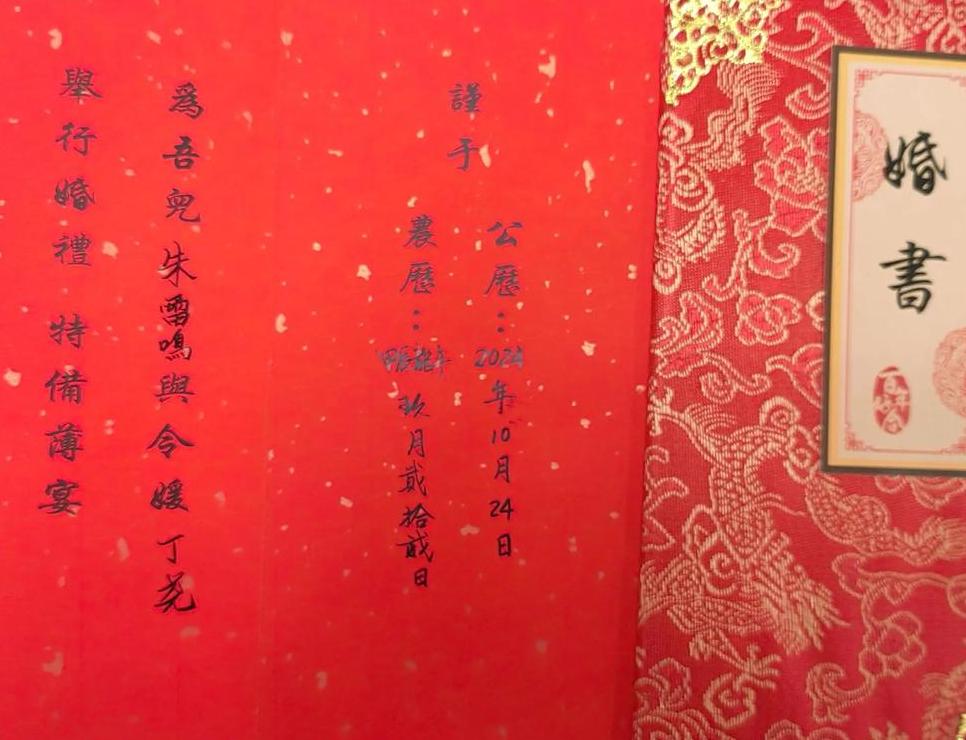 婚書
謹于
公歷：2024年10月24日
農歷：甲辰龍年玖月貳拾貳日
為吾兒朱雷鳴與令媛丁尧
舉行婚禮 特備薄宴